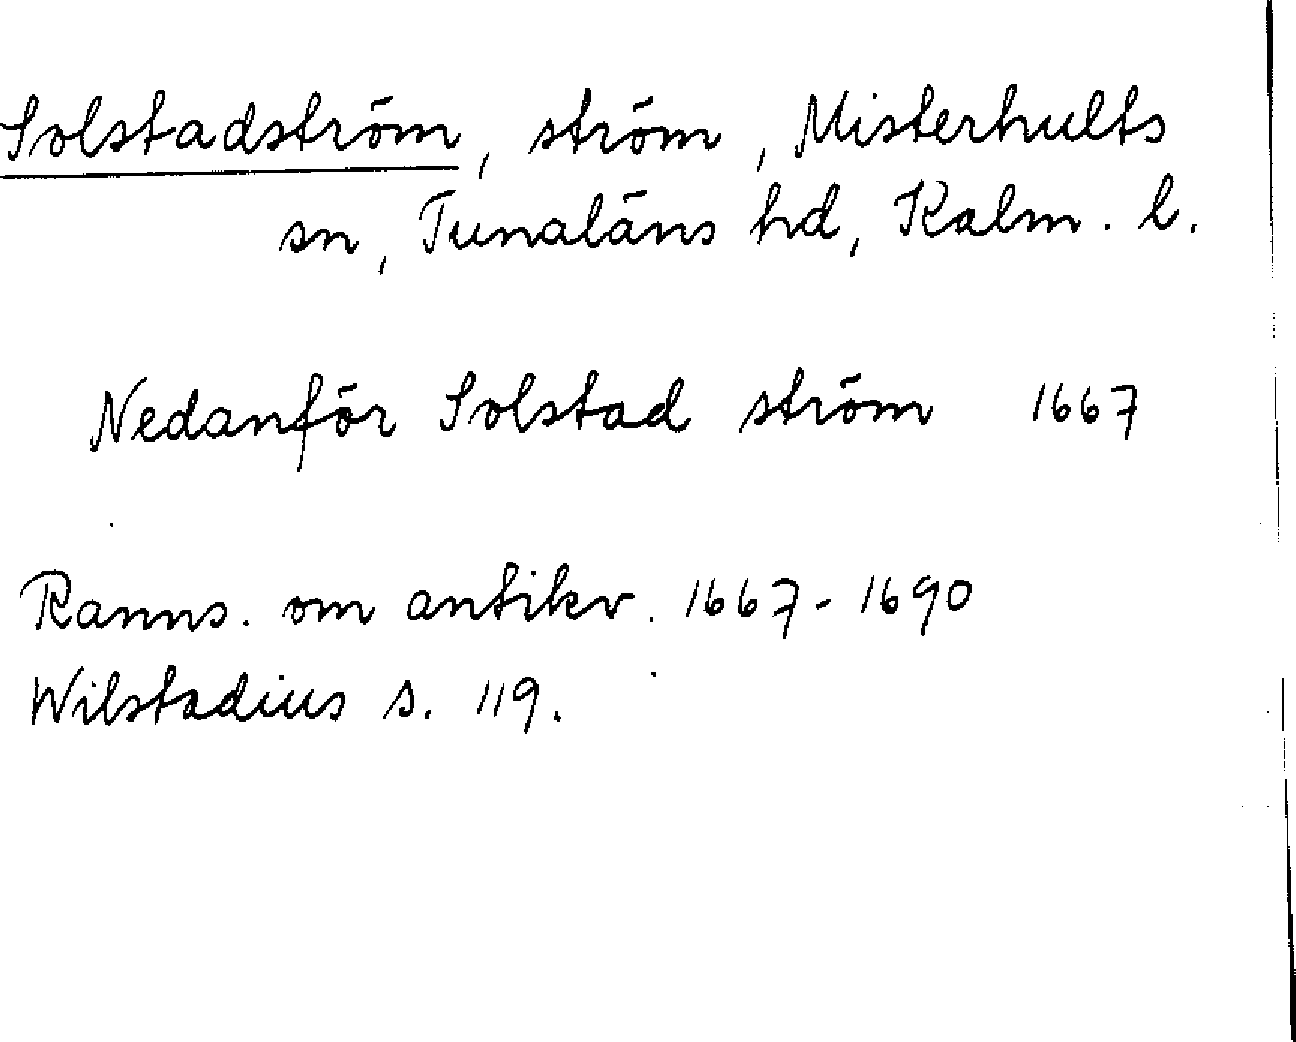 Solstadström, ström, Misterhults
sn, Tunaläns hd, Kalm. l.
Nedanför Solstad ström 1667
Ranns. om antikv. 1667-1690
Wilstadius s. 119.